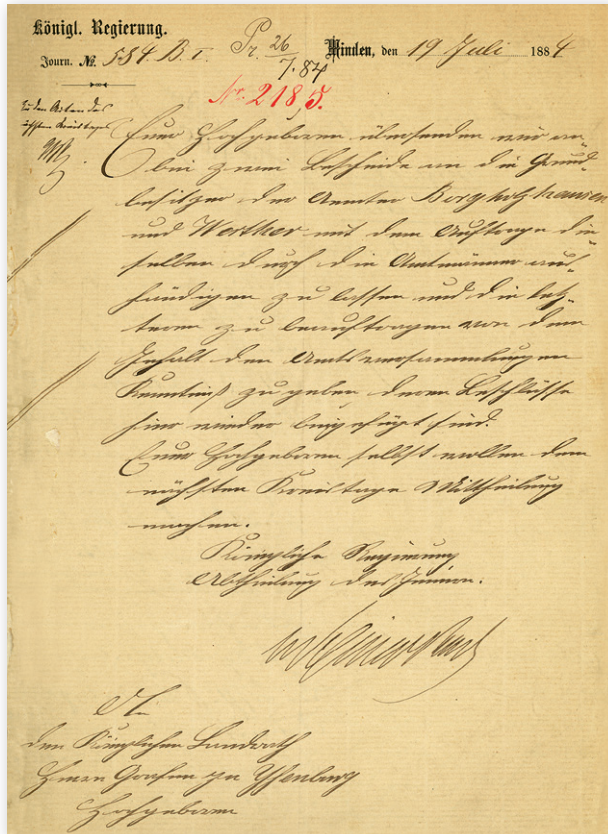 Königl. Regierung.
Journ. No. 584. B. I. Pr. 26/7.84 Minden, den 19 Juli 1884
Nr. 218,5.
Zu den Akten des
Kreistages
Euer Hochgeboren übersenden wir an-
bei zwei Bescheide an die Grund-
besitzer der Aemter Borgholzhausen
und Werther mit dem Auftrage die-
selben durch die Amtmänner aus-
händigen zu lassen und die letz-
teren zu beauftragen von dem
Inhalt den Amtsversammlungen
Kenntniß zu geben deren Beschlüsse
hier wieder beigefügt sind.
Euer Hochgeboren selbst wollen dem
nächsten Kreistage Mittheilung
machen.
Königliche Regierung
Abtheilung des Innern.
An
den Königlichen Landrath
Herrn Grafen zu Ysenburg
Hochgeboren